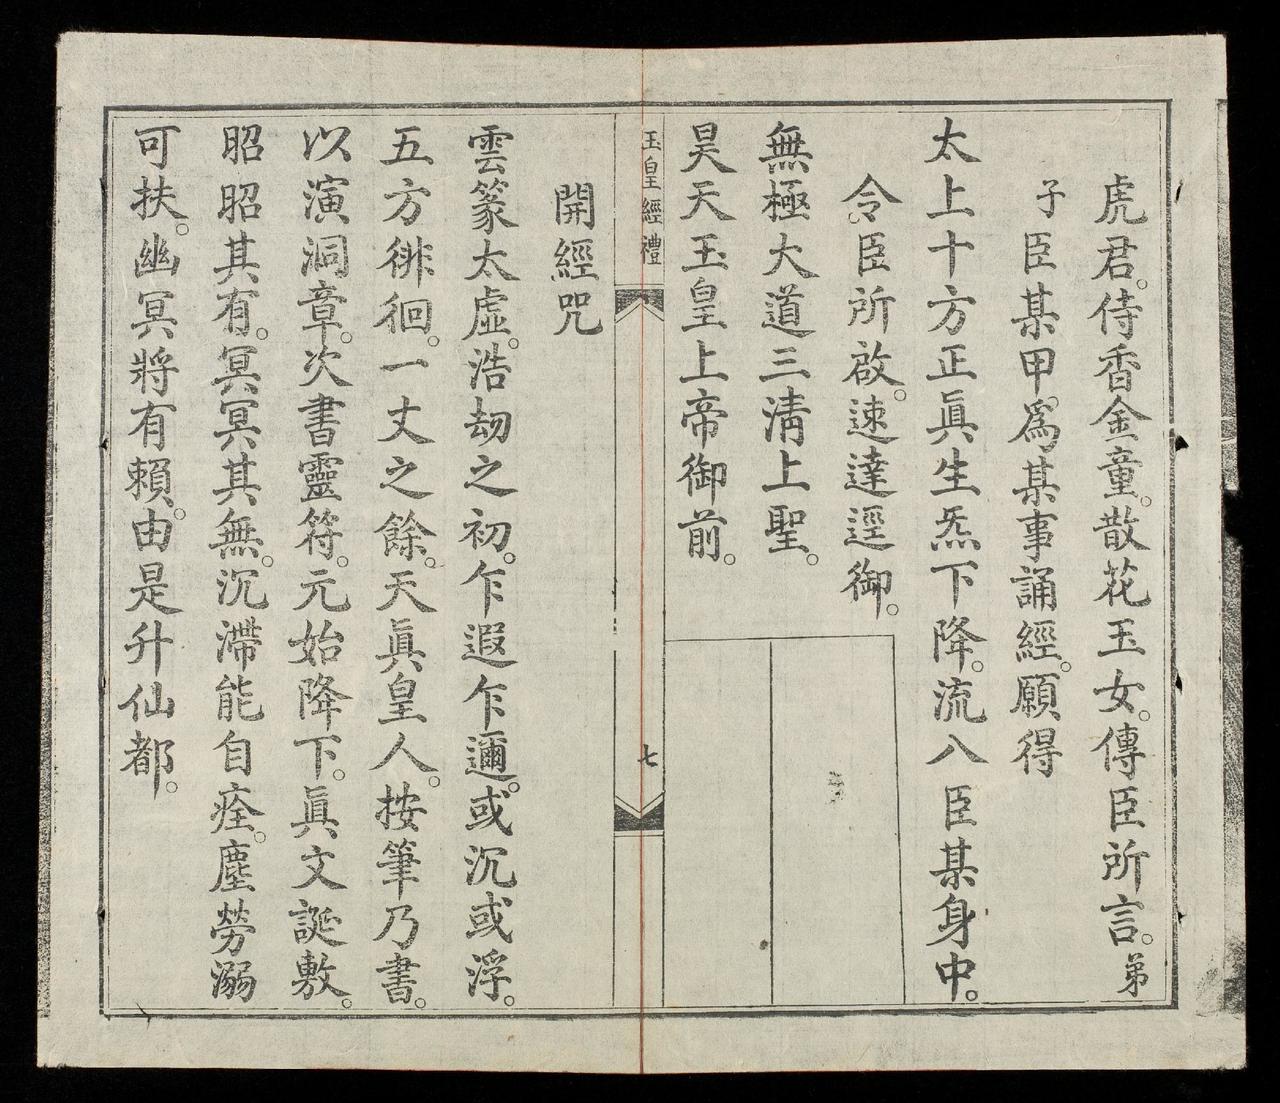 虎君。侍香金童。散花玉女。傳臣所言。弟
子臣某甲。爲某事誦經。願得
太上十方正眞生炁下降。流八臣某身中。
令臣所啟。速達逕御。
無極大道三淸上聖。
昊天玉皇上帝御前。
玉皇經禮
七
開經咒
雲篆太虛。浩劫之初。乍遐乍邇。或沉或浮。
五方徘徊。一丈之餘。天眞皇人。按筆乃書。
以演洞章。次書靈符。元始降下。眞文誕敷。
昭昭其有。冥冥其無。沉滯能自痊。塵勞溺
可扶。幽冥將有賴。由是升仙都。